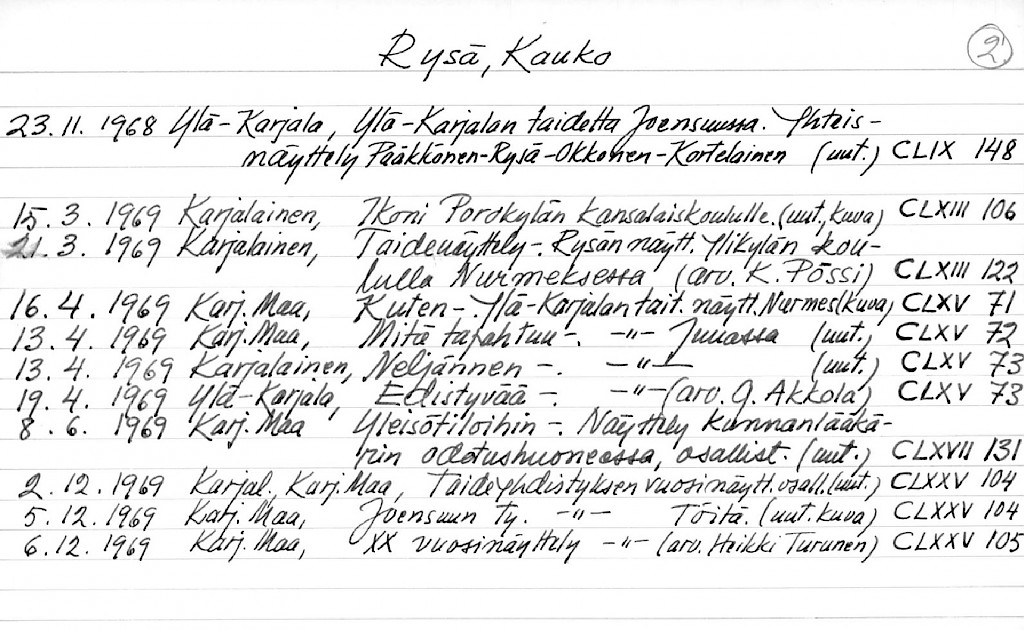 Rysä, Kauko
2.
23.11.1968 Ylä-Karjala, Ylä-Karjalan taidetta Joensuussa. Yhteis-
näyttely Pääkkönen-Rysä-Okkonen-Kortelainen (uut.) CLIX 148
15.3.1969 Karjalainen, Ikoni Porokylän kansalaiskoululle. (uut., kuva) CLXIII 106
21.3.1969 Karjalainen, Taidenäyttely-. Rysän näytt. Ylikylän kou-
lulla Nurmeksessa (arv. K. Pössi) CLXIII 122
16.4.1969 Karj. Maa, Kuten-. Ylä-Karjalan tait. näytt. Nurmes (kuva) CLXV 71
13.4.1969 Karj. Maa, Mitä tapahtuu-. -"- Juuassa (uut.) CLXV 72
13.4.1969 Karjalainen, Neljännen -. -"- (uut.) CLXV 73
19.4.1969 Ylä-Karjala, Edistyvää -. -"- (arv. J. Akkola) CLXV 73
8.6.1969 Karj. Maa Yleisötiloihin -. Näyttely kunnanlääkä-
rin odotushuoneessa, osallist. (uut.) CLXVII 131
2.12.1969 Karjal., Karj. Maa, Taideyhdistyksen vuosinäytt. osall. (uut.) CLXXV 104
5.12.1969 Karj. Maa, Joensuun ty. -"- Töitä. (uut. kuva) CLXXV 104
6.12.1969 Karj. Maa, XX vuosinäyttely -"- (arv. Heikki Turunen) CLXXV 105